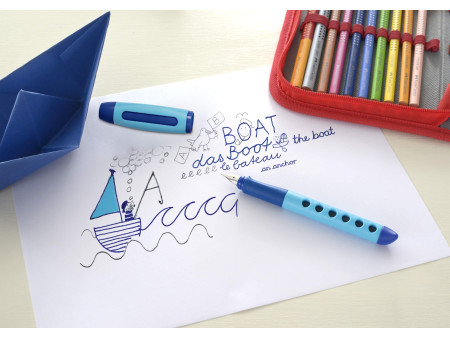 BOAT
das Boot the boat
le bateau
an anchor
A